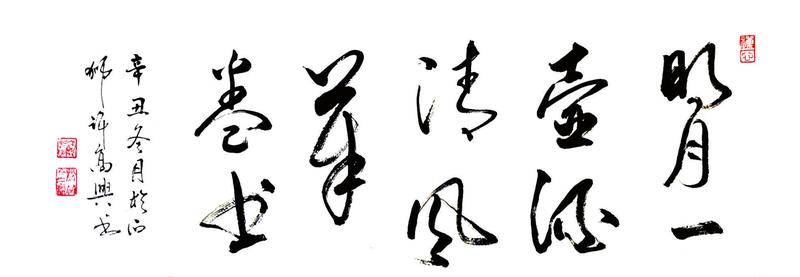 明月一
壺酒
清風
萬
卷書
辛丑冬月於石
獅許高興書